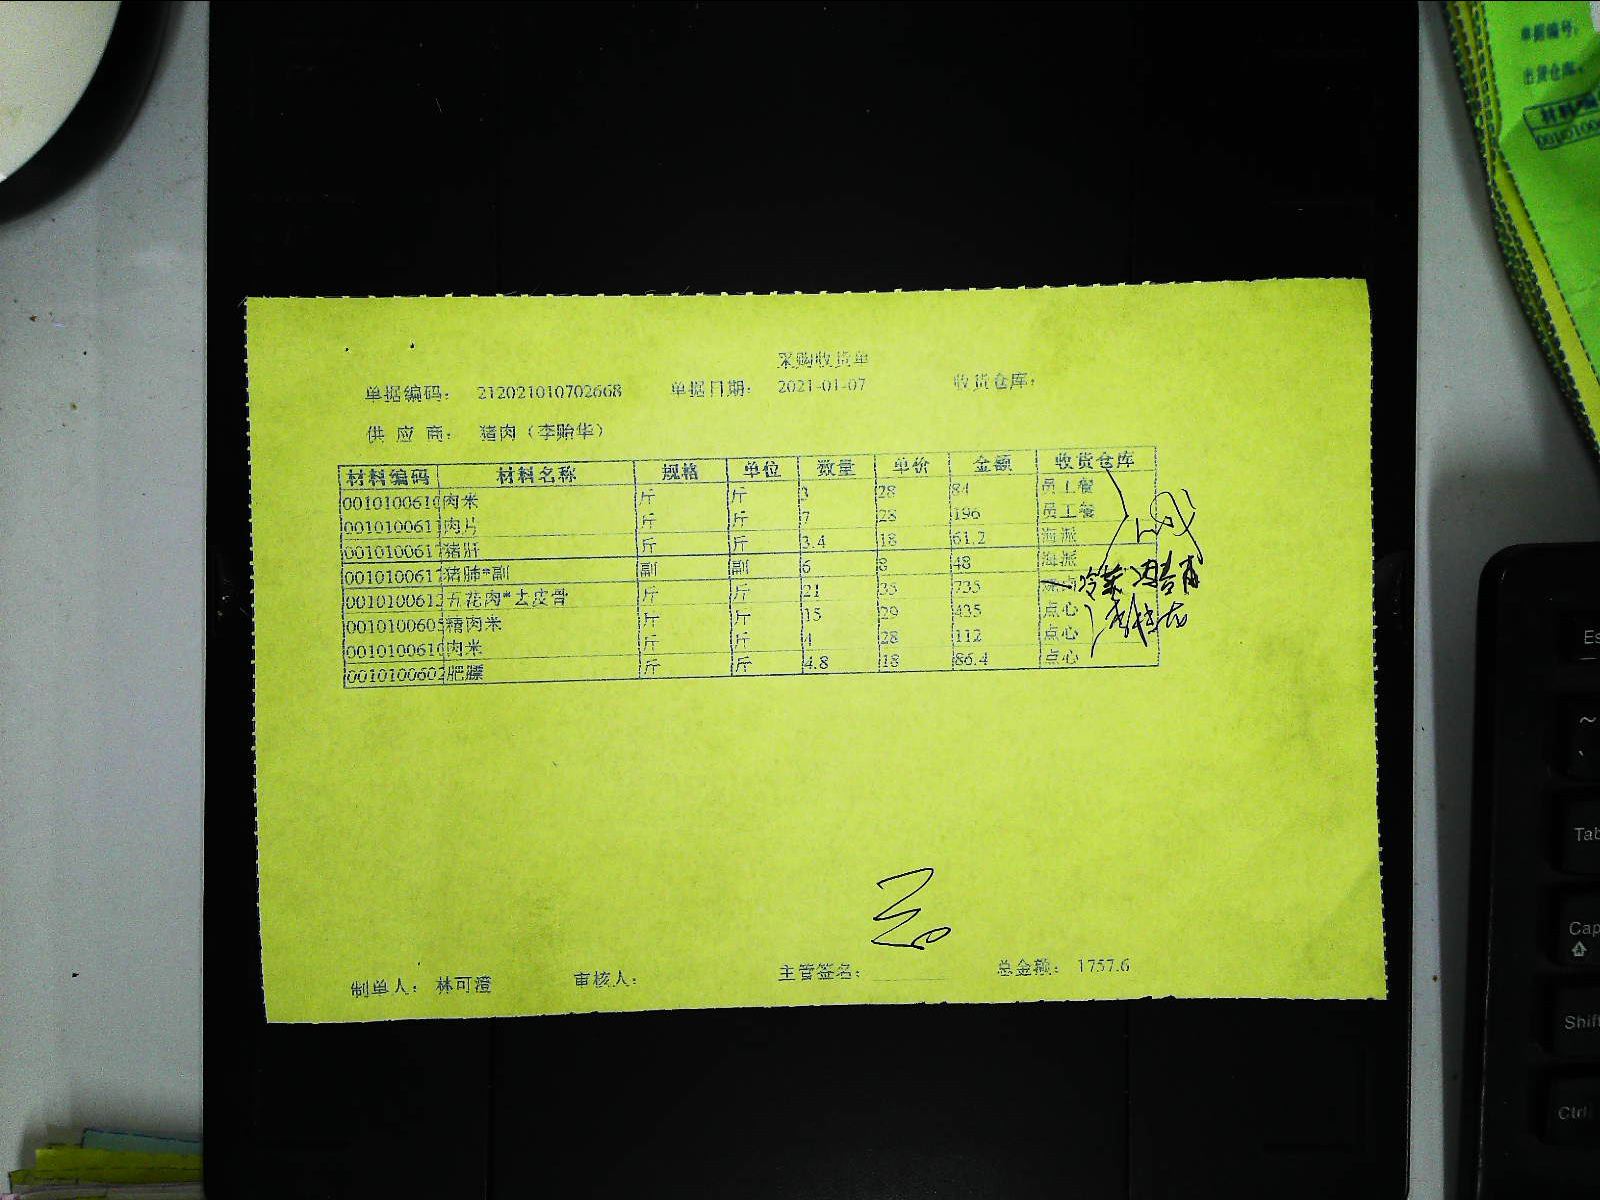 采购收货单
单据编码： 212021010702668 单据日期： 2021-01-07 收货仓库：
供 应 商： 猪肉（李贻华）
材料编码 材料名称 规格 单位 数量 单价 金额 收货仓库
0010100610 肉米 斤 斤 3 28 84 员工餐
0010100611 肉片 斤 斤 7 28 196 员工餐
001010061 猪肝 斤 斤 3.4 18 61.2 海派
001010061 猪肺*副 副 副 6 8 48 海派
001010061 五花肉*去皮骨 斤 斤 21 35 735 冷菜
001010060 精肉米 斤 斤 15 29 435 点心
0010100610 肉米 斤 斤 4 28 112 点心
001010060 肥膘 斤 斤 4.8 18 86.4 点心
制单人： 林可澄 审核人： 主管签名： 总金额： 1757.6
单据编号：
出货仓库：
材料编
Es
~
Tab
Cap
Shift
Ctrl